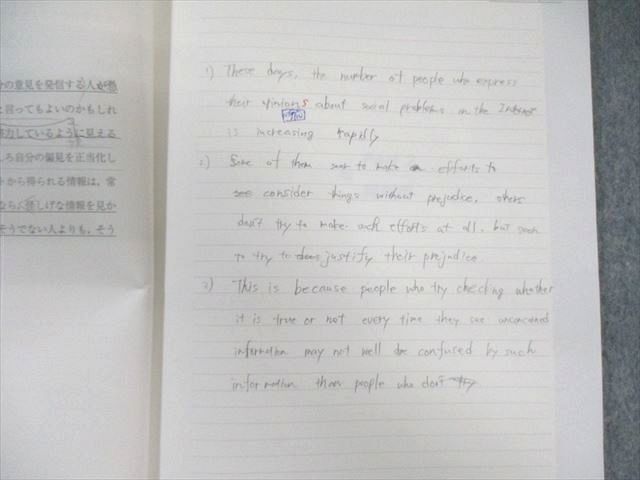 分の意見を発信する人が急
と言ってもよいのかもしれ
努力しているように見える
しろ自分の偏見を正当化し
トから得られる情報は、常
なら、怪しげな情報を見か
そうでない人よりも、そう
1) These days, the number of people who express
their opinions about social problems on the Internet
is increasing rapidly
2) Some of them seem to make efforts to
see consider things without prejudice, others
don't try to make such efforts at all, but seem
to try to justify their prejudice.
3) This is because people who try checking whether
it is true or not every time they see unconcerned
information may not well be confused by such
information than people who don't try